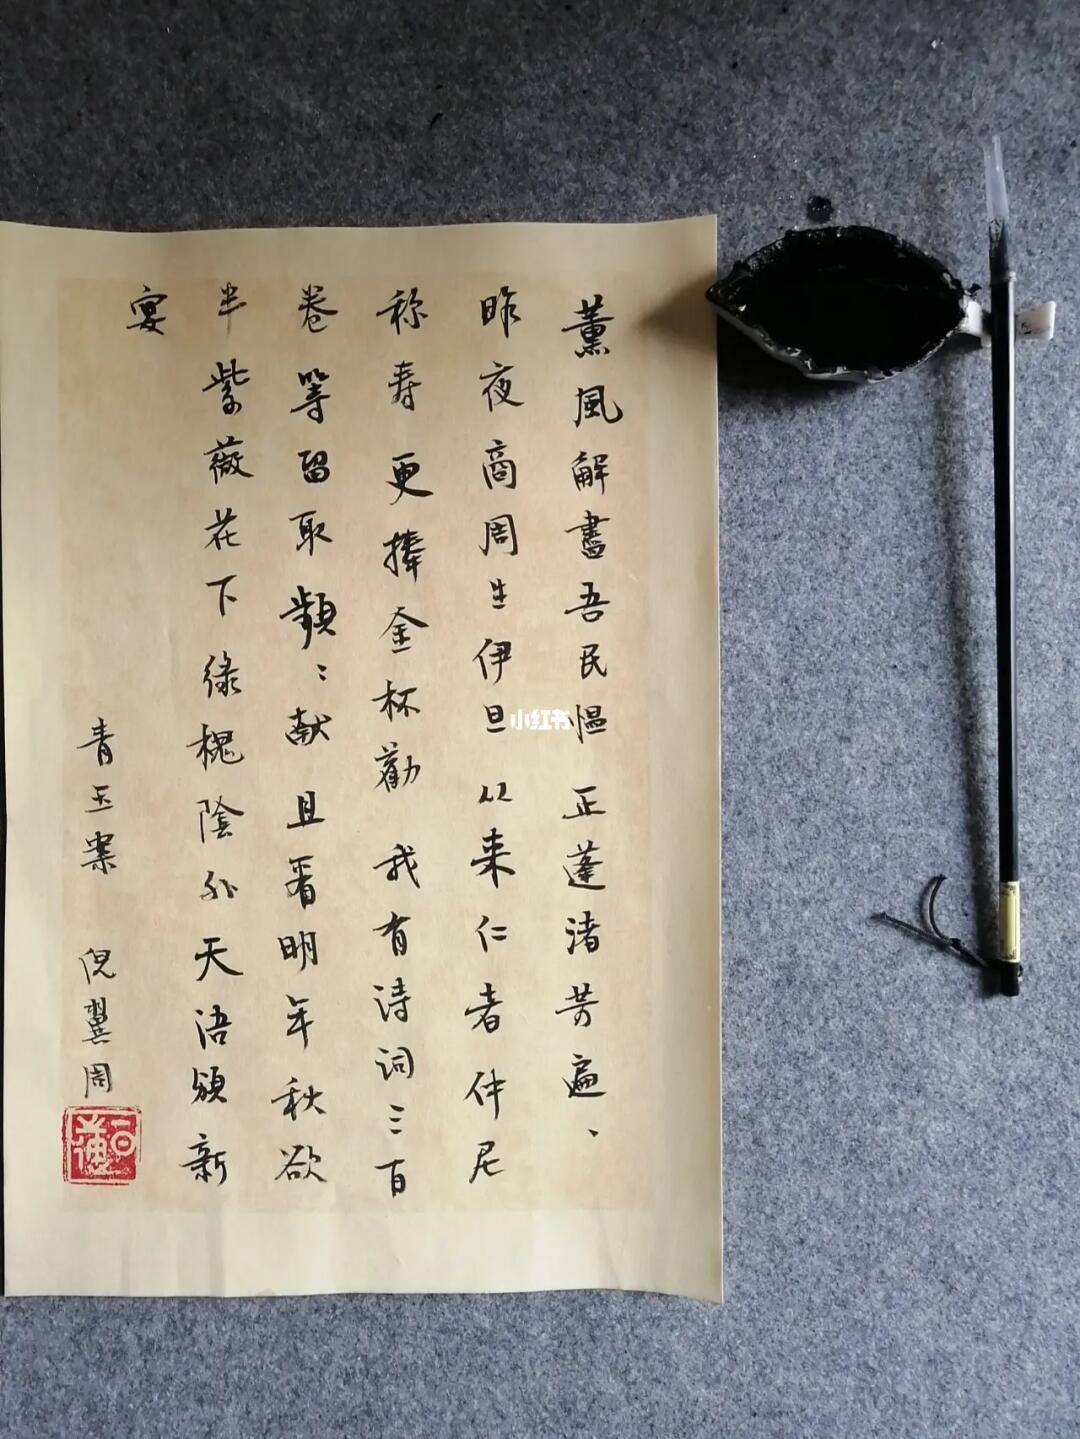 薰風解盡吾民愠正蓬渚芳遍、
昨夜商周生伊旦以来仁者仲尼
称寿更捧金杯勸我有诗词三百
卷等留取顰〻献且看明年秋欲
半紫薇花下绿槐陰外天语頒新
宴
青玉案 倪翼周
小红书